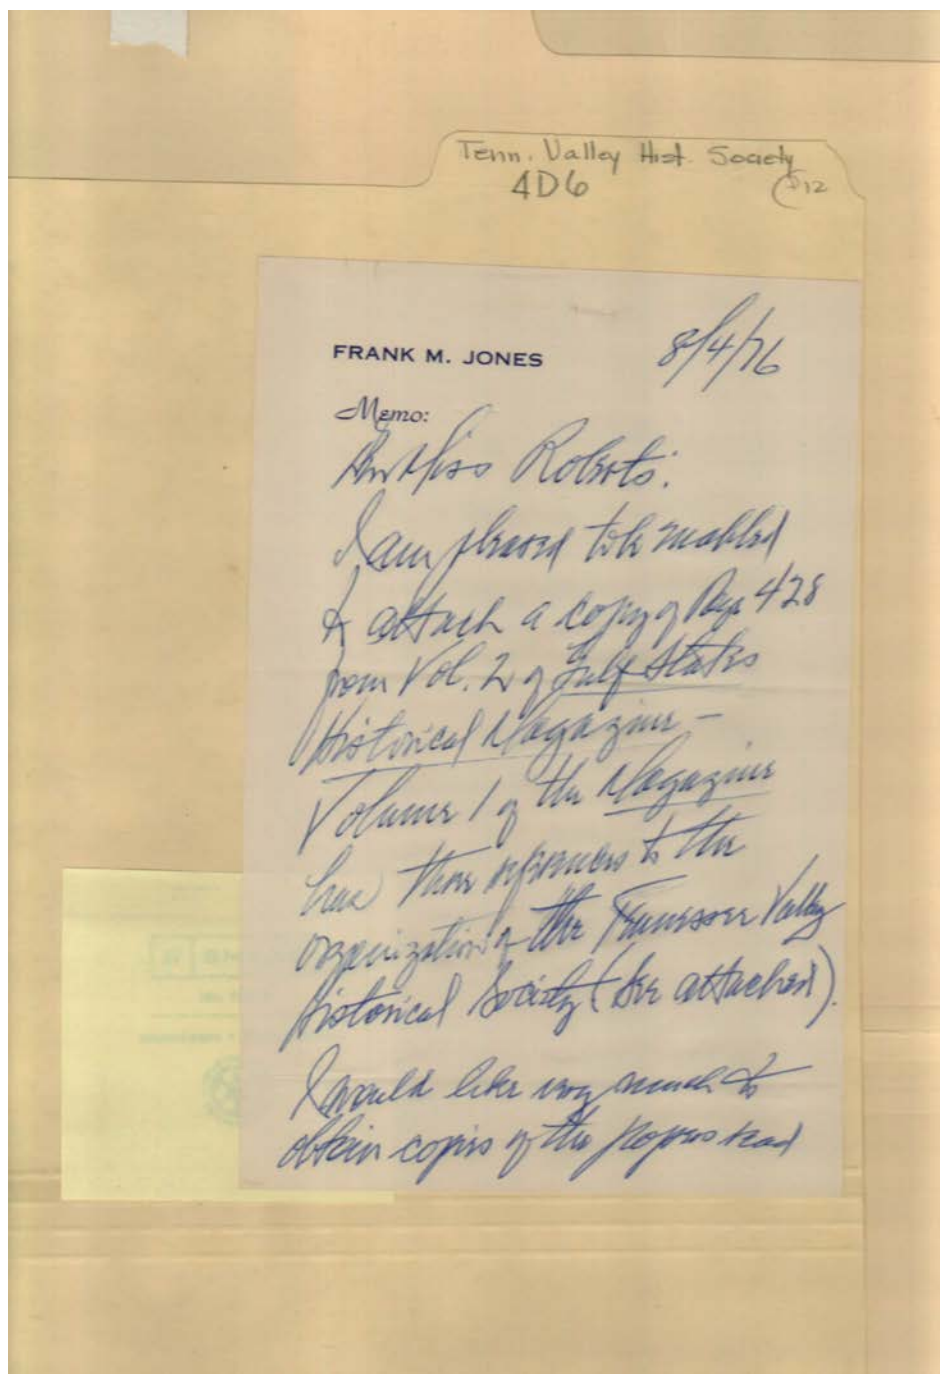 Tenn. Valley Hist. Society
4D6
12
FRANK M. JONES
8/4/76
Memo:
Miss Roberts:
I am pleased to be enabled
to attach a copy of Page 428
from Vol. 2 of Gulf States
Historical Magazine –
Volume 1 of the Magazine
has three references to the
organization of the Tennessee Valley
Historical Society (see attached).
I would like very much to
obtain copies of the papers read